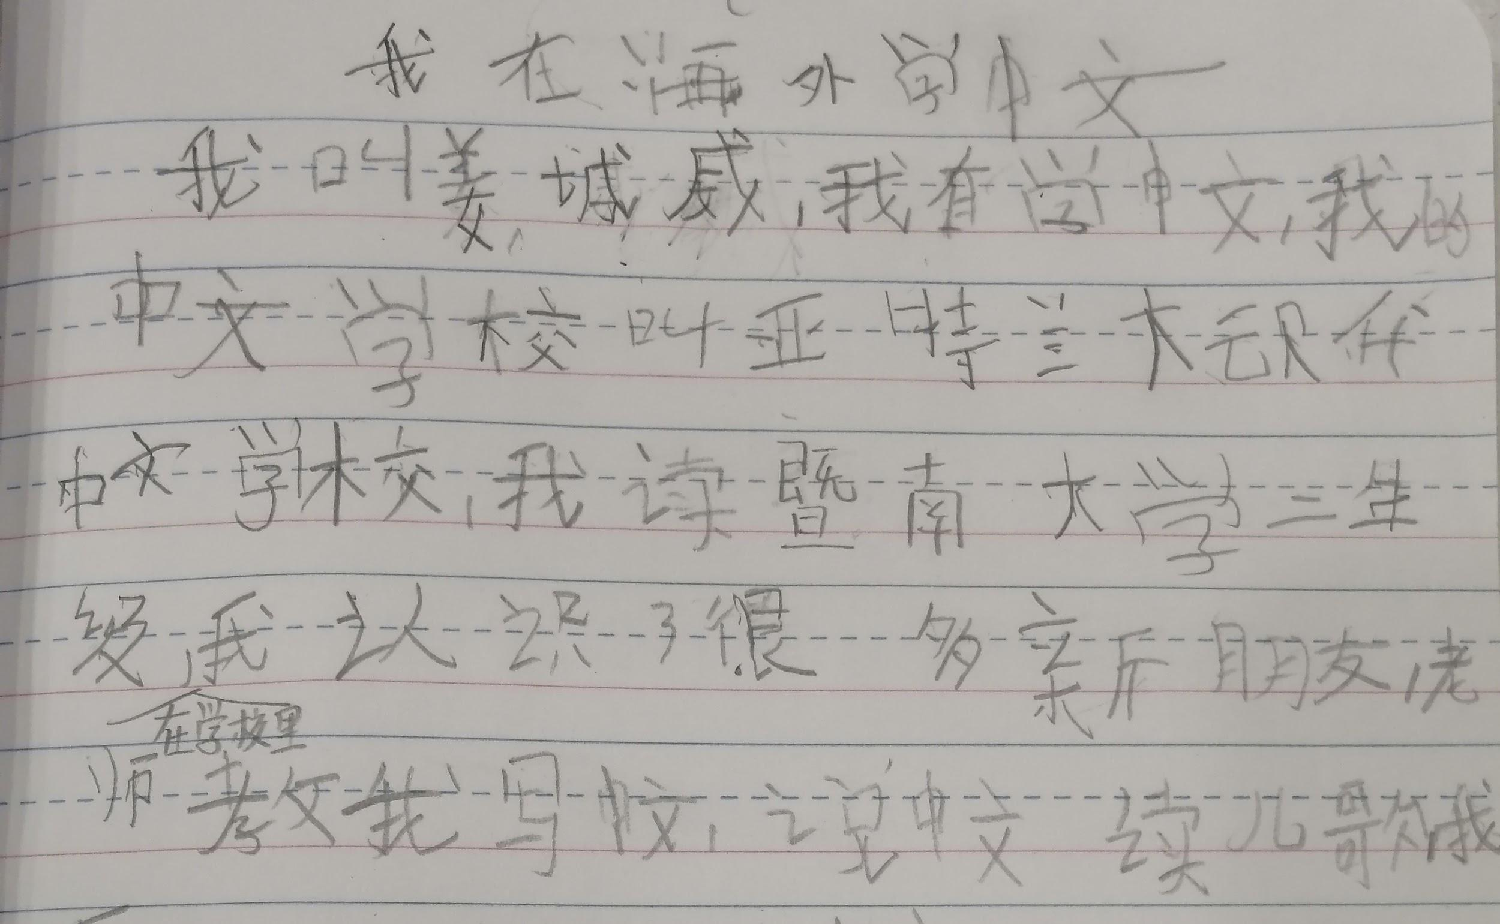 我在海外学中文
我叫姜城威,我有学中文,我的
中文学校叫亚特兰大现代
中文学校,我读暨南大学二年
级,我认识了很多新朋友,老
在学校里
师教我写中文,说中文读儿歌,我